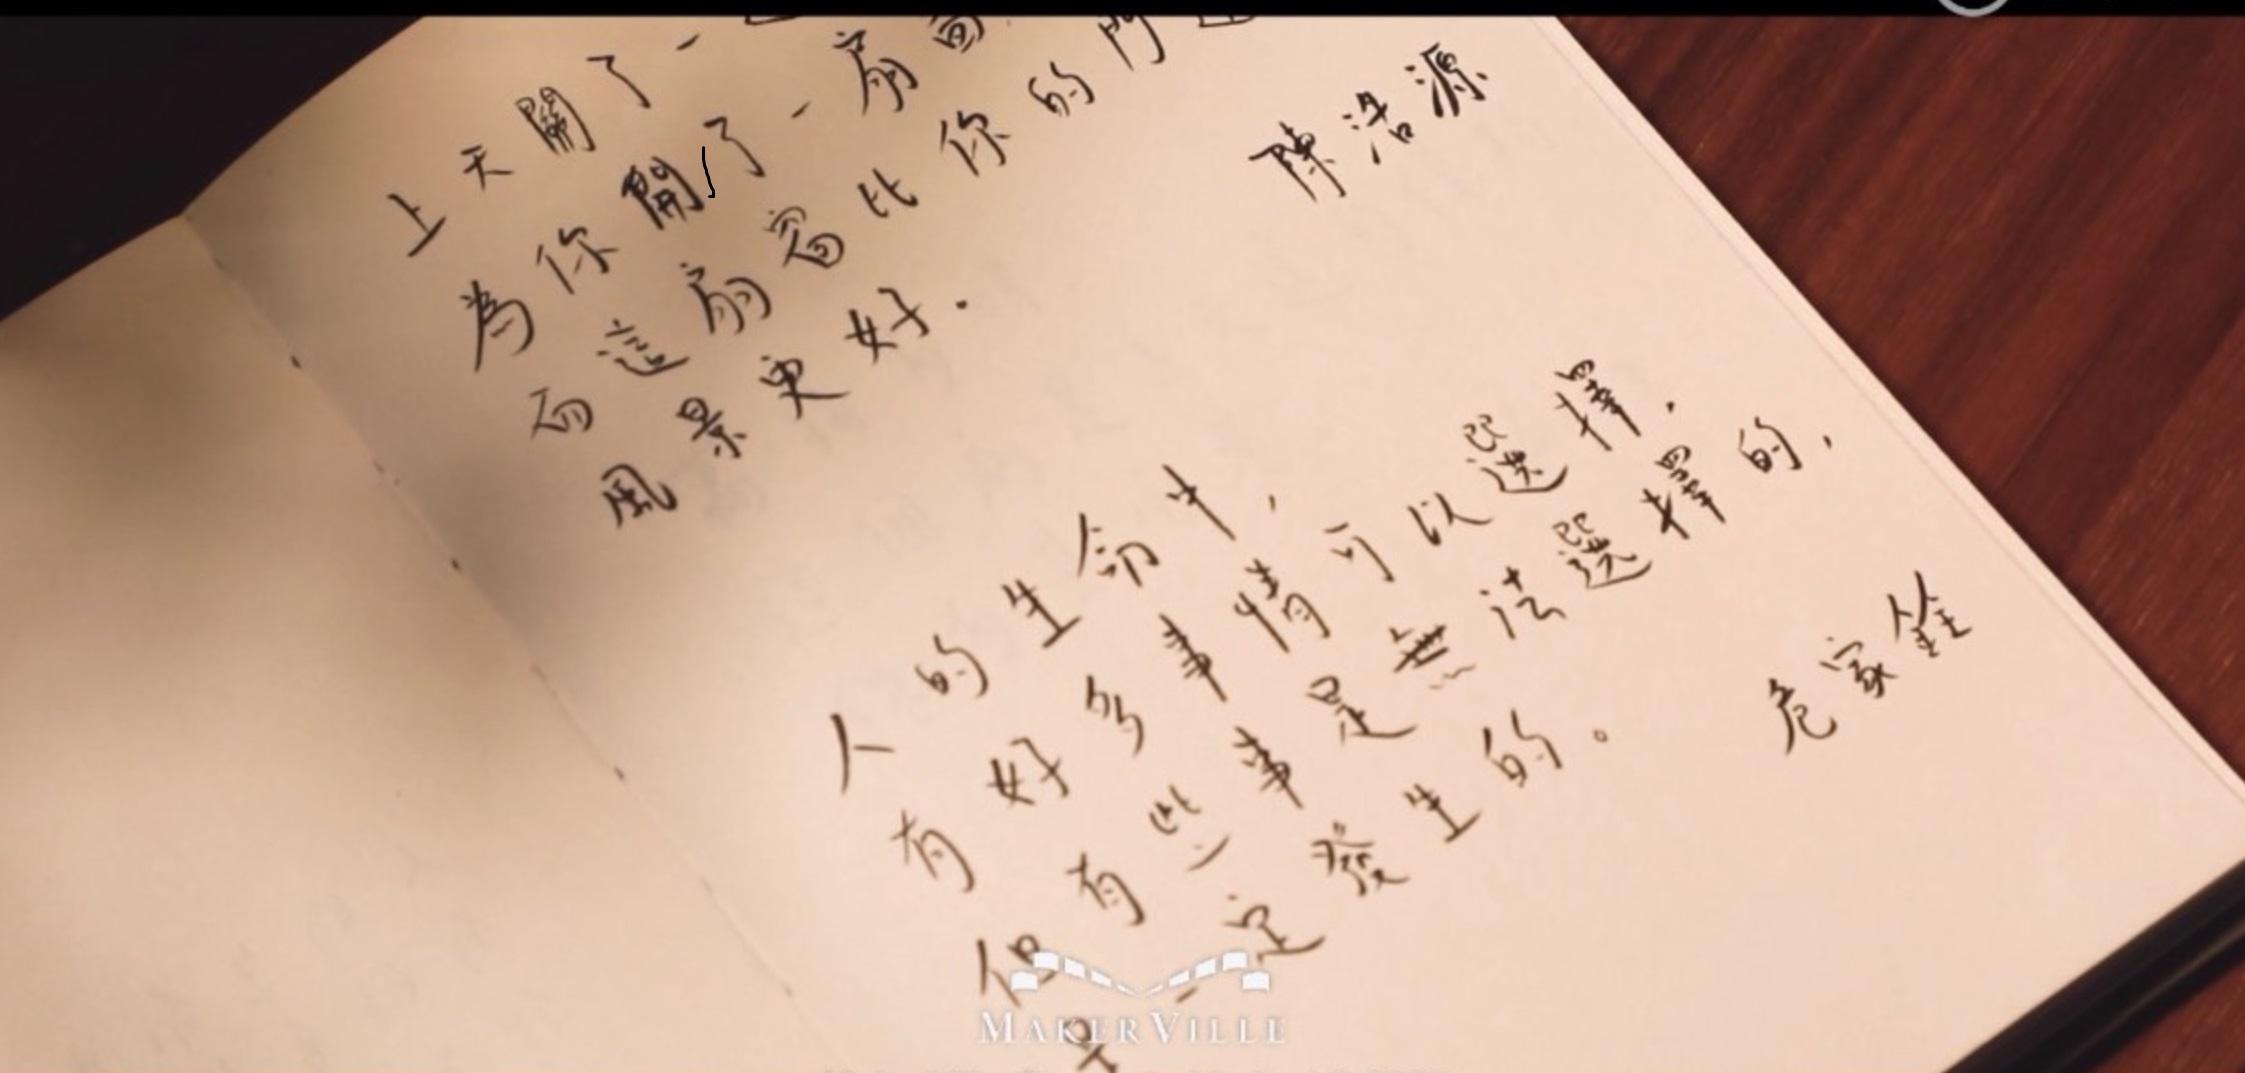 上天關了一
為你開了一扇窗
而這扇窗比你的門
風景更好.
陳浩源
人的生命中,
有好多事情可以選擇,
但有些事是無法選擇的,
是一定發生的。
危家銓
MAKERVILLE